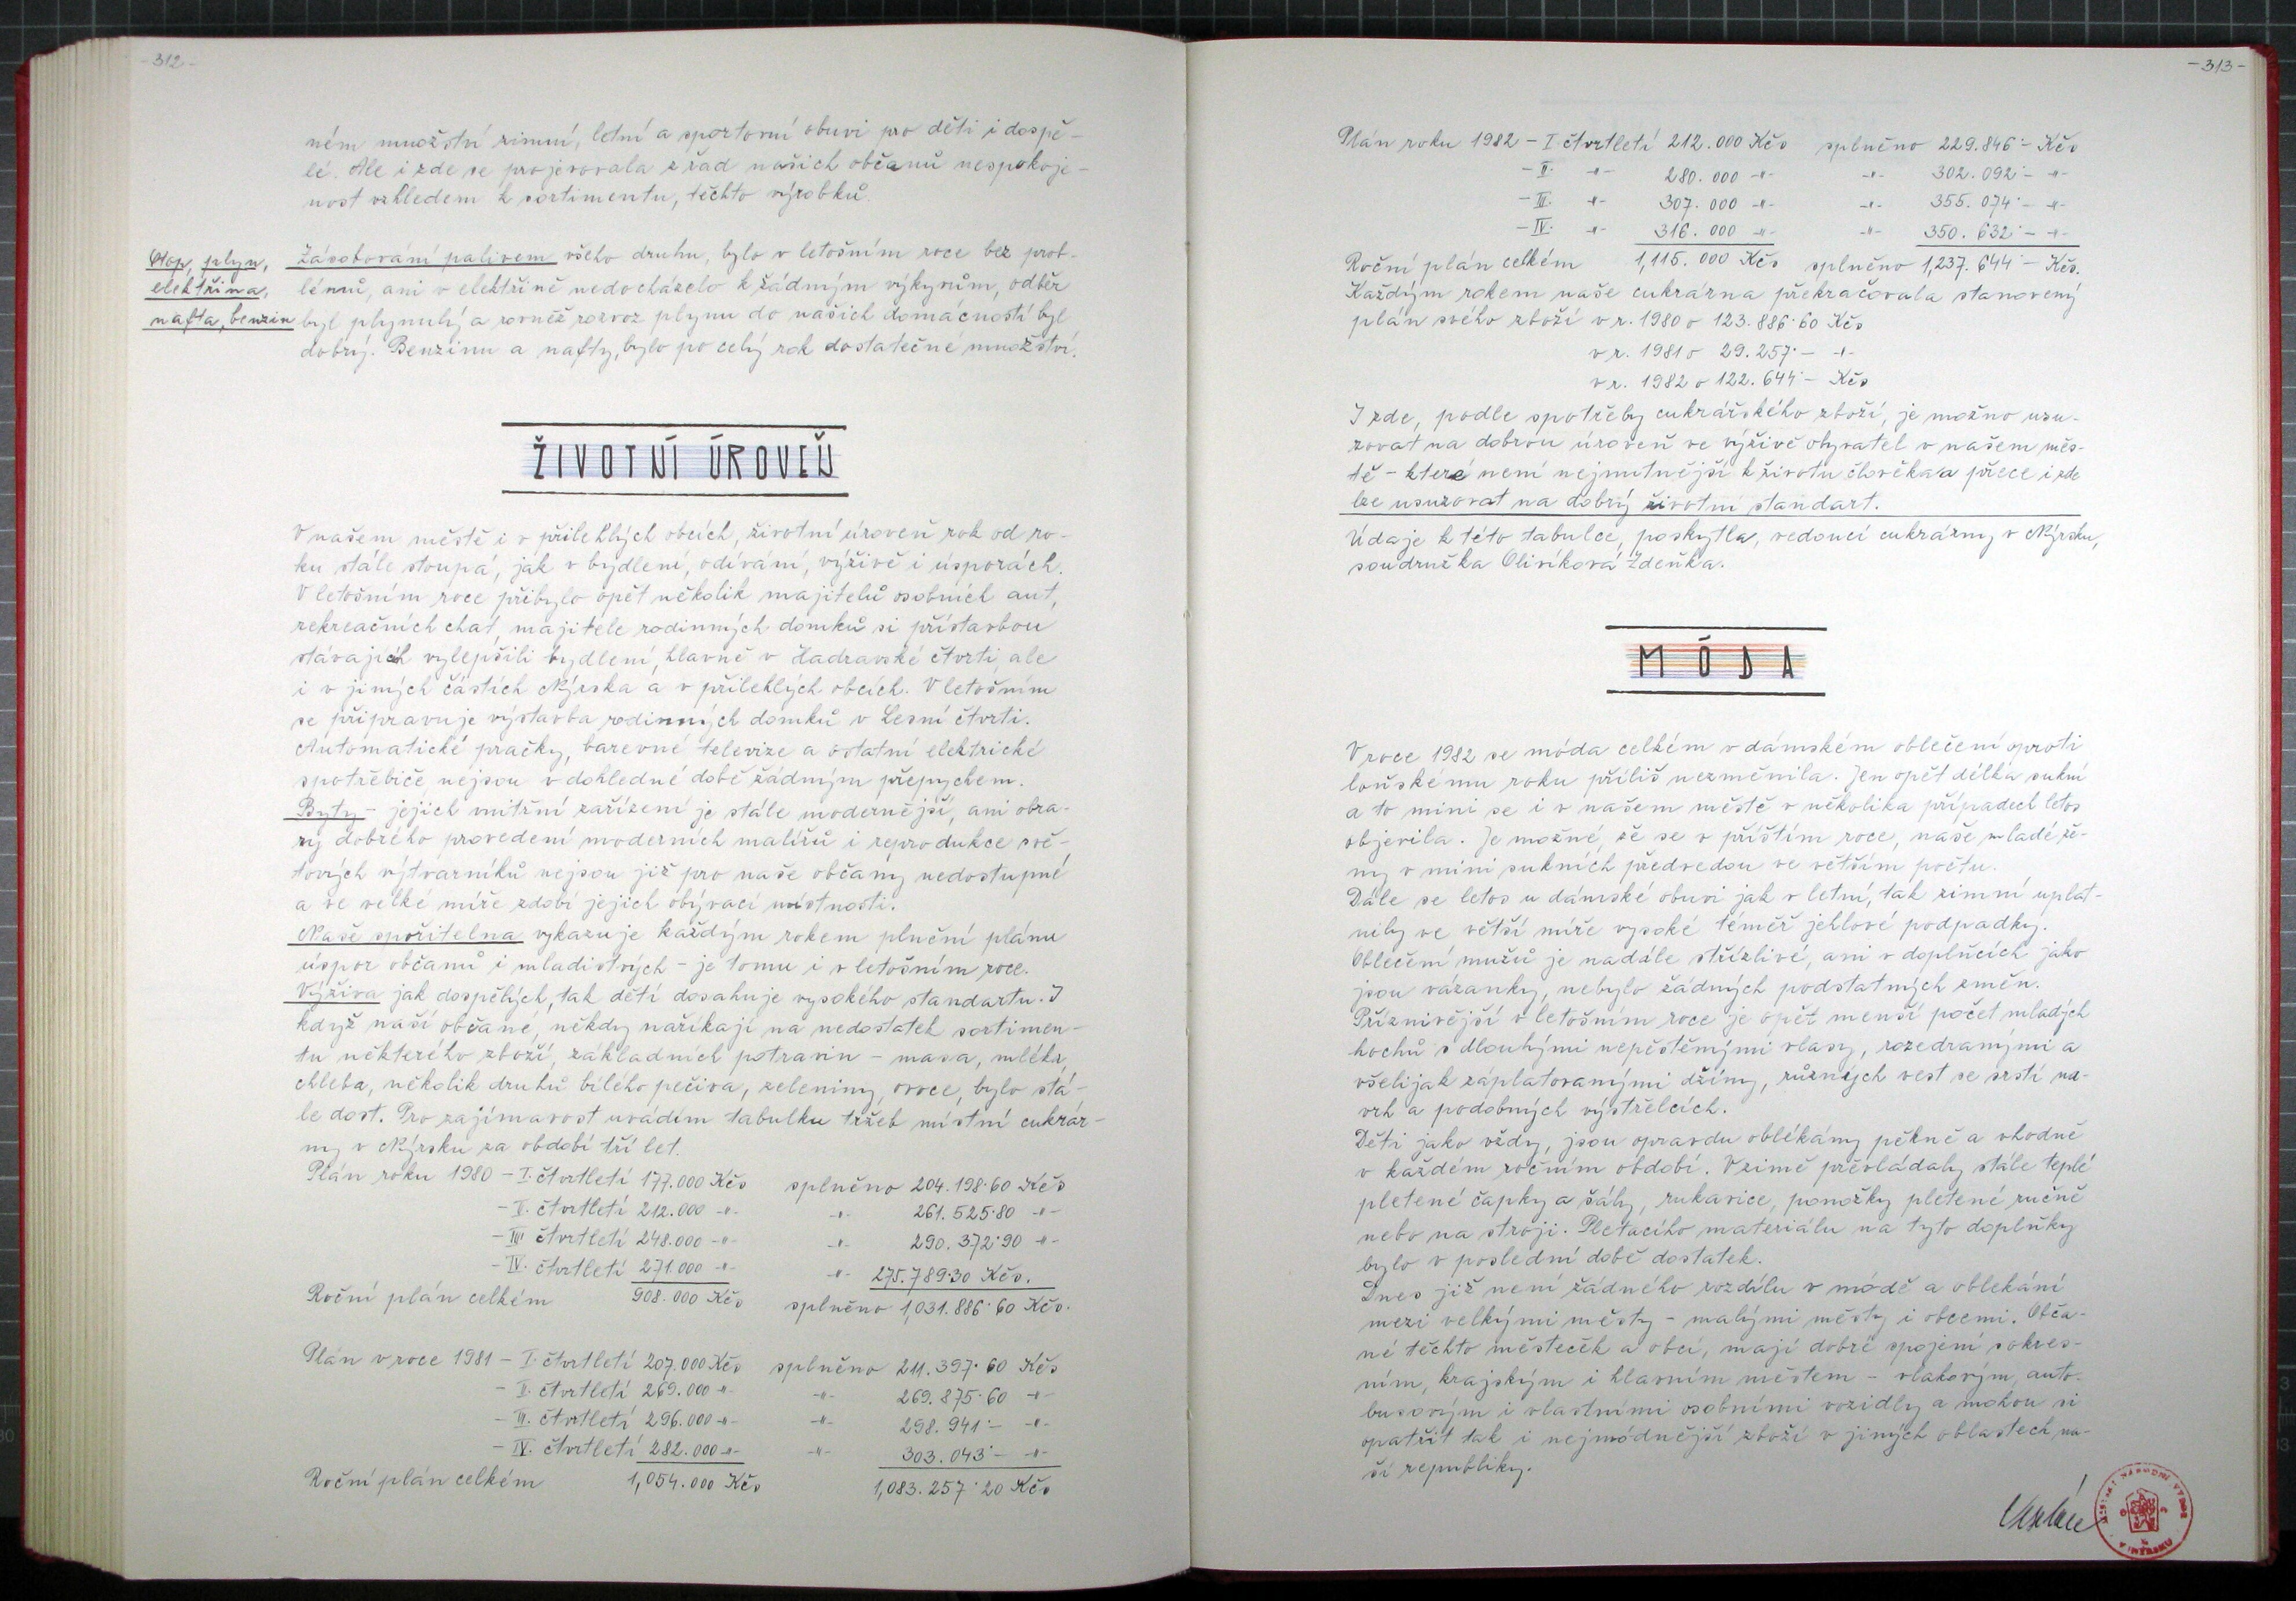 - 312 -
ném množství zimní, letní a sportovní obuvi pro děti i dospě-
lé. Ale i zde se projevovala z řad našich občanů nespokoje-
nost vzhledem k sortimentu, těchto výrobků.
Otop, plyn,
elektřina,
nafta, benzin
Zásobování palivem všeho druhu, bylo v letošním roce bez prob-
lémů, ani v elektřině nedocházelo k žádným výkyvům, odběr
byl plynulý a rovněž rozvoz plynu do našich domácností byl
dobrý. Benzinu a nafty, bylo po celý rok dostatečné množství.
ŽIVOTNÍ ÚROVEŇ
V našem městě i v přilehlých obcích, životní úroveň rok od ro-
ku stále stoupá, jak v bydlení, odívání, výživě i úsporách.
V letošním roce přibylo opět několik majitelů osobních aut,
rekreačních chat, majitelé rodinných domků si přístavbou
stávajících vylepšili bydlení, hlavně v Hadravské čtvrti, ale
i v jiných částech Nýrska a v přilehlých obcích. V letošním
se připravuje výstavba rodinných domků v Lesní čtvrti.
Automatické pračky, barevné televize a ostatní elektrické
spotřebiče nejsou v dohledné době žádným přepychem.
Byty - jejich vnitřní zařízení je stále modernější, ani obra-
zy dobrého provedení moderních malířů i reprodukce svě-
tových výtvarníků nejsou již pro naše občany nedostupné
a ve velké míře zdobí jejich obývací místnosti.
Naše spořitelna vykazuje každým rokem plnění plánu
úspor občanů i mladistvých - je tomu i v letošním roce.
Výživa jak dospělých, tak dětí dosahuje vysokého standartu. I
když naší občané, někdy naříkají na nedostatek sortimen-
tu některého zboží, základních potravin - masa, mléka,
chleba, několik druhů bílého pečiva, zeleniny, ovoce, bylo stá-
le dost. Pro zajímavost uvádím tabulku tržeb místní cukrár-
ny v Nýrsku za období tří let.
Plán roku 1980 - I. čtvrtletí 177.000 Kčs splněno 204.198·60 Kčs
- II. čtvrtletí 212.000 -"- -"- 261.525·80 -"-
- III čtvrtletí 248.000 -"- -"- 290.372·90 -"-
- IV. čtvrtletí 271.000 -"- -"- 275.789·30 Kčs.
Roční plán celkém 908.000 Kčs splněno 1,031.886·60 Kčs.
Plán v roce 1981 - I. čtvrtletí 207.000 Kčs splněno 211.397·60 Kčs
- II. čtvrtletí 269.000 -"- -"- 269.875·60 -"-
- III. čtvrtletí 296.000 -"- -"- 298.941·- -"-
- IV. čtvrtletí 282.000 -"- -"- 303.043·- -"-
Roční plán celkém 1,054.000 Kčs 1,083.257·20 Kčs
- 313 -
Plán roku 1982 - I. čtvrtletí 212.000 Kčs splněno 229.846·- Kčs
- II. -"- 280.000 -"- -"- 302.092·- -"-
- III. -"- 307.000 -"- -"- 355.074·- -"-
- IV. -"- 316.000 -"- -"- 350.632·- -"-
Roční plán celkém 1,115.000 Kčs splněno 1,237.644·- Kčs.
Každým rokem naše cukrárna překračovala stanovený
plán svého zboží v r. 1980 o 123.886·60 Kčs
v r. 1981 o 29.257·- -"-
v r. 1982 o 122.644·- Kčs
I zde, podle spotřeby cukrářského zboží, je možno usu-
zovat na dobrou úroveň ve výživě obyvatel v našem měs-
tě - které není nejnutnější k životu člověka a přece i zde
lze usuzovat na dobrý životní standart.
Údaje k této tabulce, poskytla, vedoucí cukrárny v Nýrsku,
soudružka Olivíková Zdeňka.
MÓDA
V roce 1982 se móda celkém v dámském oblečení oproti
loňskému roku příliš nezměnila. Jen opět délka sukní
a to mini se i v našem městě v několika případech letos
objevila. Je možné, že se v příštím roce, naše mladé že-
ny v mini sukních předvedou ve větším počtu.
Dále se letos u dámské obuvi jak v letní, tak zimní uplat-
nily ve větší míře vysoké téměř jehlové podpadky.
Oblečení mužů je nadále střízlivé, ani v doplňcích jako
jsou vázanky, nebylo žádných podstatných změn.
Příznivější v letošním roce je opět menší počet mladých
hochů s dlouhými nepěstěnými vlasy, rozedranými a
všelijak záplatovanými džíny, různých vest se srstí na-
vrh a podobných výstřelcích.
Děti jako vždy, jsou opravdu oblékány pěkně a vhodně
v každém ročním období. V zimě převládaly stále teplé
pletené čapky a šály, rukavice, ponožky pletené ručně
nebo na stroji. Pletacího materiálu na tyto doplňky
bylo v poslední době dostatek.
Dnes již není žádného rozdílu v módě a oblekání
mezi velkými městy - malými městy i obcemi. Obča-
né těchto městeček a obcí, mají dobré spojení s okres-
ním, krajským i hlavním městem - vlakovým, auto-
busovým i vlastními osobními vozidly a mohou si
opatřit tak i nejmódnější zboží v jiných oblastech na-
ší republiky.
MĚSTSKÝ NÁRODNÍ VÝBOR
V NÝRSKU